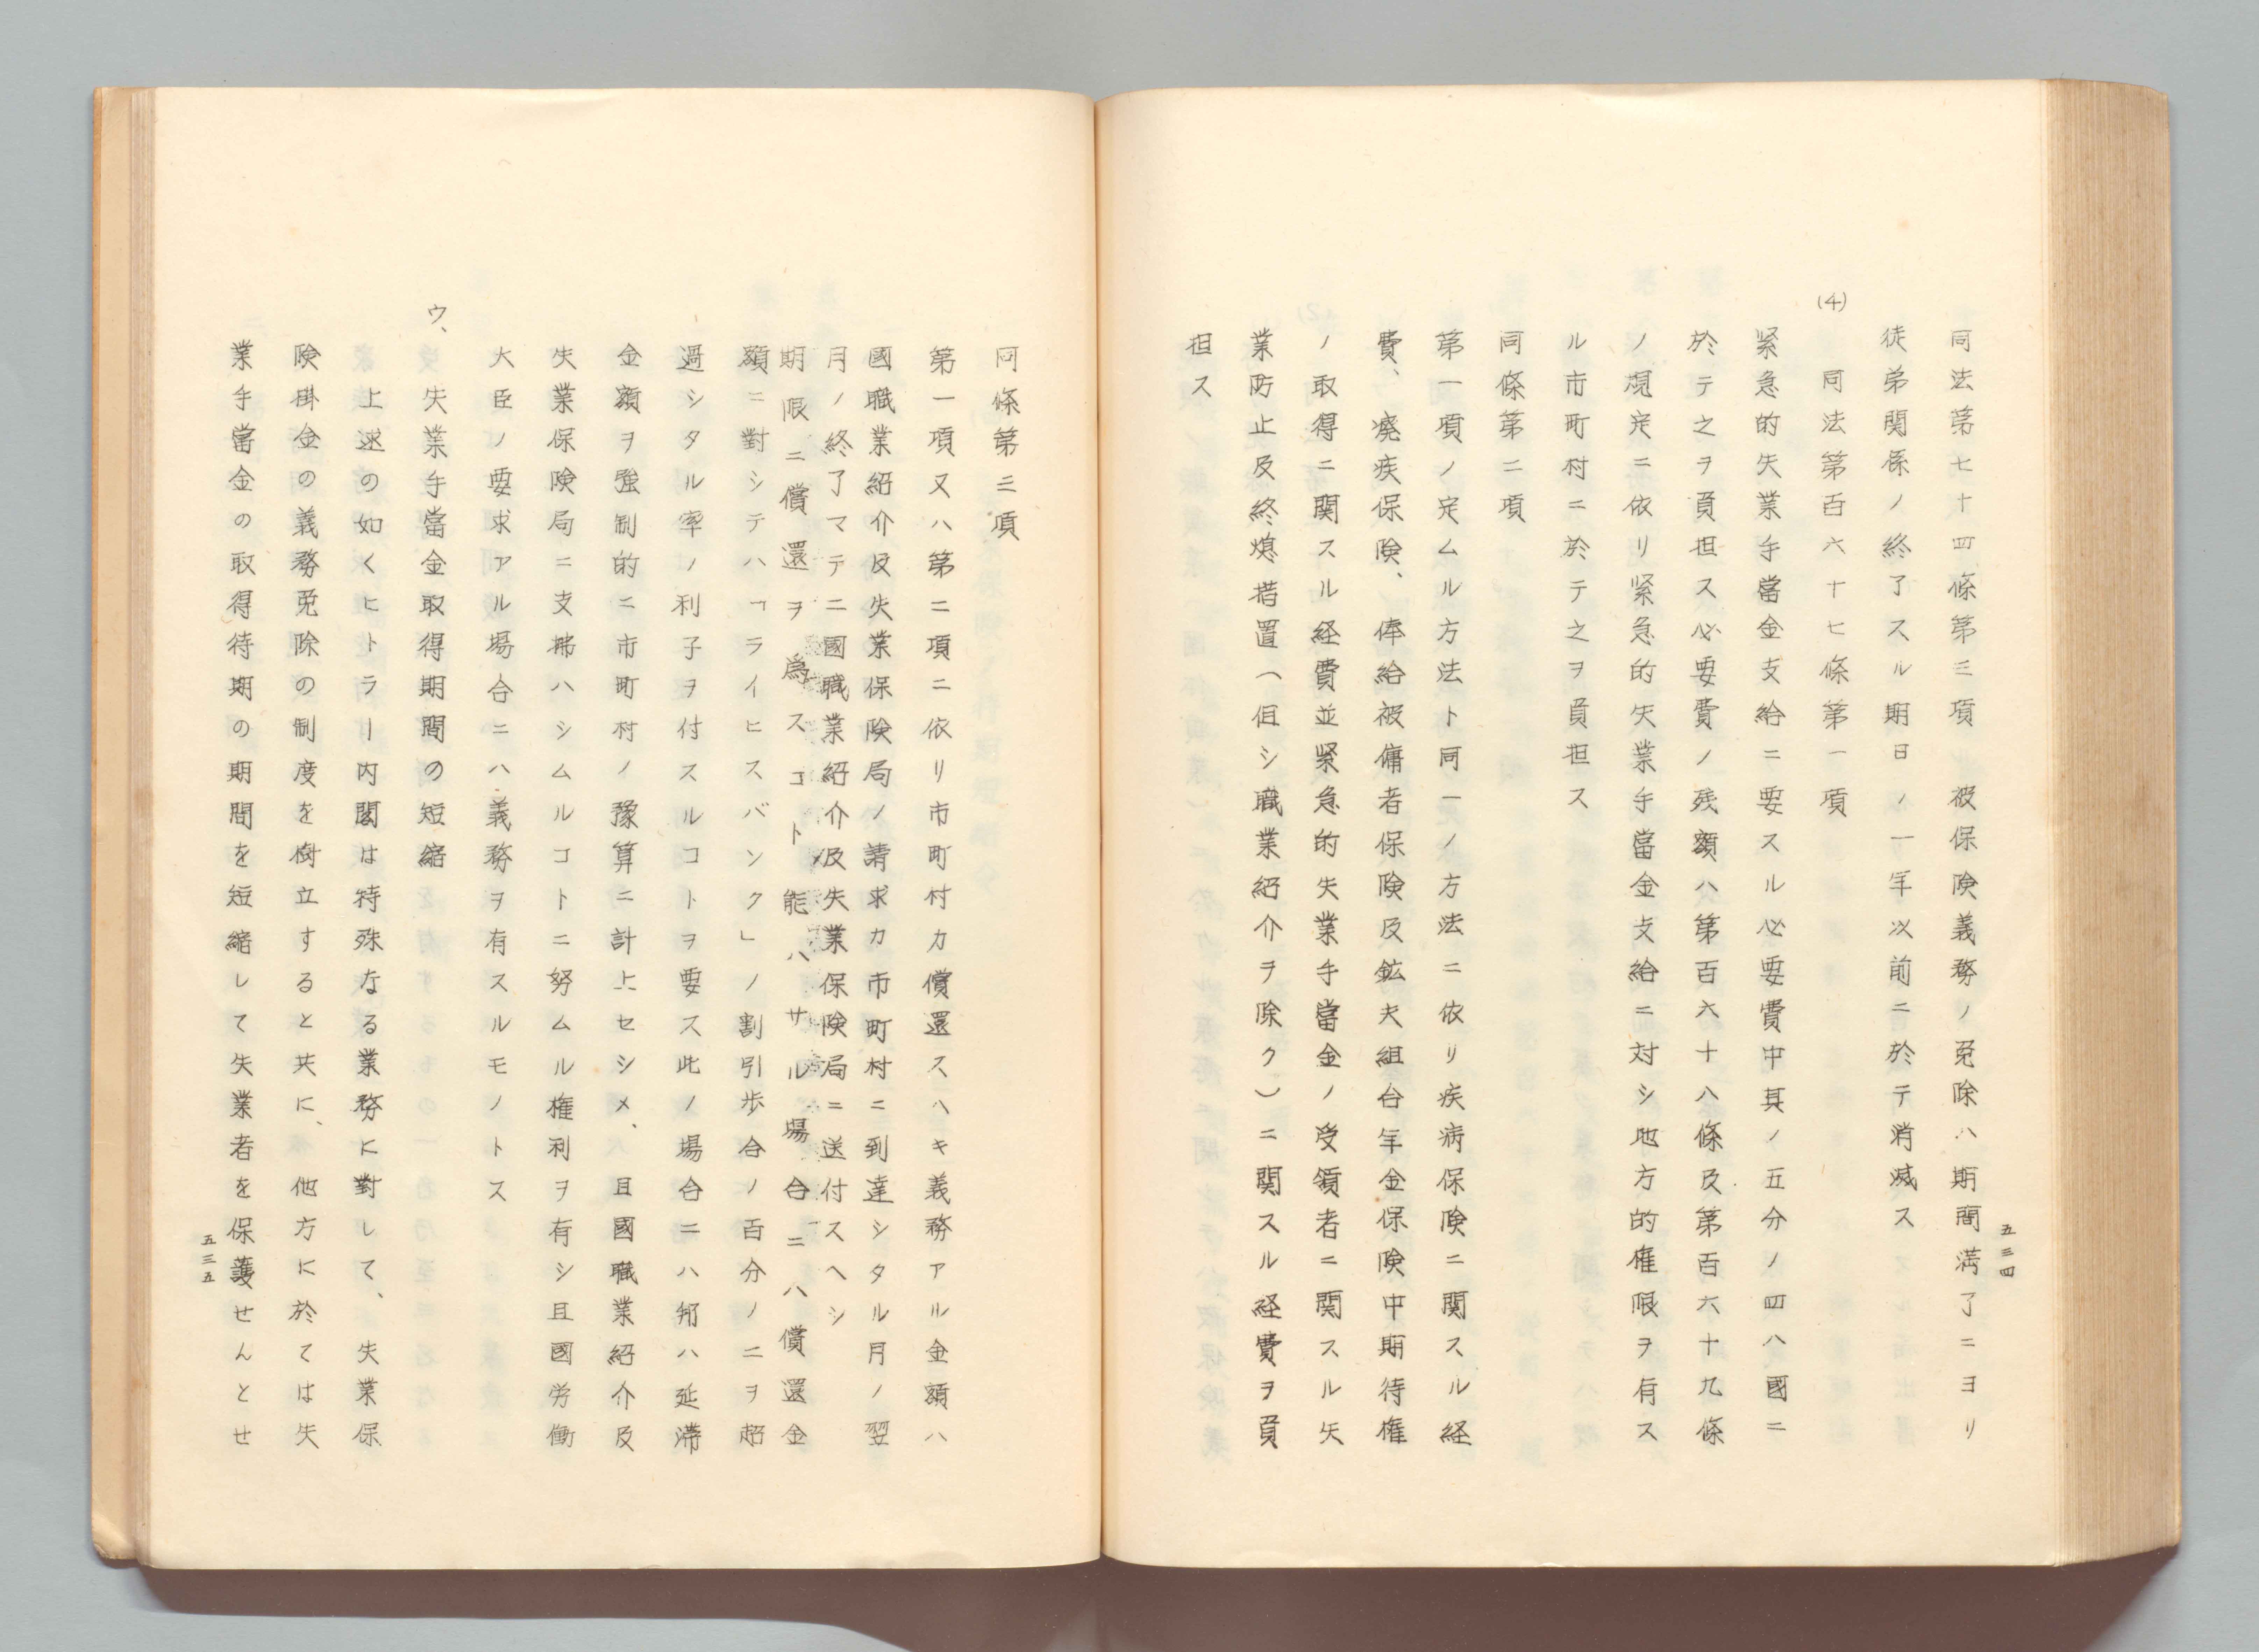 同法第七十四條第三項　被保険義務ノ免除ハ期間満了ニヨリ
徒弟関係ノ終了スル期日ノ一年以前ニ於テ消滅ス
(4)　同法第百六十七條第一項
緊急的失業手當金支給ニ要スル必要費中其ノ五分ノ四ハ國ニ
於テ之ヲ負担ス必要費ノ残額ハ第百六十八條及第百六十九條
ノ規定ニ依リ緊急的失業手當金支給ニ対シ地方的権限ヲ有ス
ル市町村ニ於テ之ヲ負担ス
同條第二項
第一項ノ定ムル方法ト同一ノ方法ニ依リ疾病保険ニ関スル経
費、廃疾保険、俸給被傭者保険及鉱夫組合年金保険中期待権
ノ取得ニ関スル経費並緊急的失業手當金ノ受領者ニ関スル失
業防止及終熄措置（但シ職業紹介ヲ除ク）ニ関スル経費ヲ負
担ス
五三四
同條第三項
第一項又ハ第二項ニ依リ市町村カ償還スヘキ義務アル金額ハ
國職業紹介及失業保険局ノ請求カ市町村ニ到達シタル月ノ翌
月ノ終了マテニ國職業紹介及失業保険局ニ送付スヘシ
期限ニ償還ヲ為スコト能ハサル場合ニハ償還金
額ニ對シテハ「ライヒスバンク」ノ割引歩合ノ百分ノ二ヲ超
過シタル率ノ利子ヲ付スルコトヲ要ス此ノ場合ニハ邦ハ延滞
金額ヲ強制的ニ市町村ノ豫算ニ計上セシメ、且國職業紹介及
失業保険局ニ支拂ハシムルコトニ努ムル権利ヲ有シ且國労働
大臣ノ要求アル場合ニハ義務ヲ有スルモノトス
ウ、失業手當金取得期間の短縮
上述の如くヒトラー内閣は特殊なる業務に對して、失業保
険掛金の義務免除の制度を樹立すると共に、他方に於ては失
業手當金の取得待期の期間を短縮して失業者を保護せんとせ
五三五